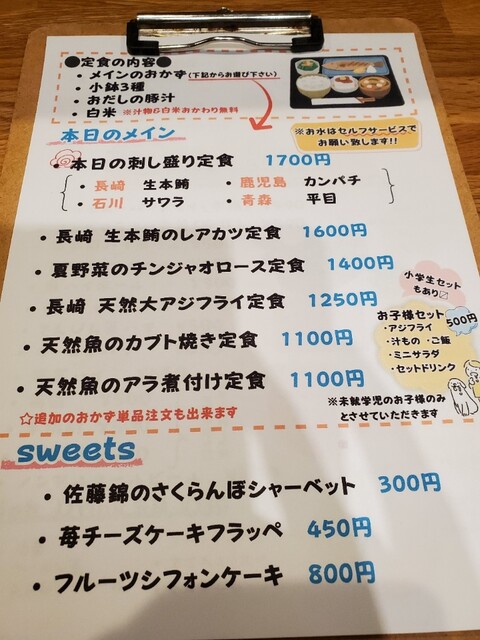 ●定食の内容●
・メインのおかず(下記からお選び下さい)
・小鉢3種
・おだしの豚汁
・白米 ※汁物&白米おかわり無料
本日のメイン
※お水はセルフサービスで
お願い致します!!
・本日の刺し盛り定食 1700円
・長崎 生本鮪 ・鹿児島 カンパチ
・石川 サワラ ・青森 平目
・長崎 生本鮪のレアカツ定食 1600円
・夏野菜のチンジャオロース定食 1400円
・長崎 天然大アジフライ定食 1250円
・天然魚のカブト焼き定食 1100円
・天然魚のアラ煮付け定食 1100円
小学生セット
もあり〼
お子様セット
500円
・アジフライ
・汁もの ・ご飯
・ミニサラダ
・セットドリンク
※未就学児のお子様のみ
とさせていただきます
☆追加のおかず単品注文も出来ます
sweets
・佐藤錦のさくらんぼシャーベット 300円
・苺チーズケーキフラッペ 450円
・フルーツシフォンケーキ 800円